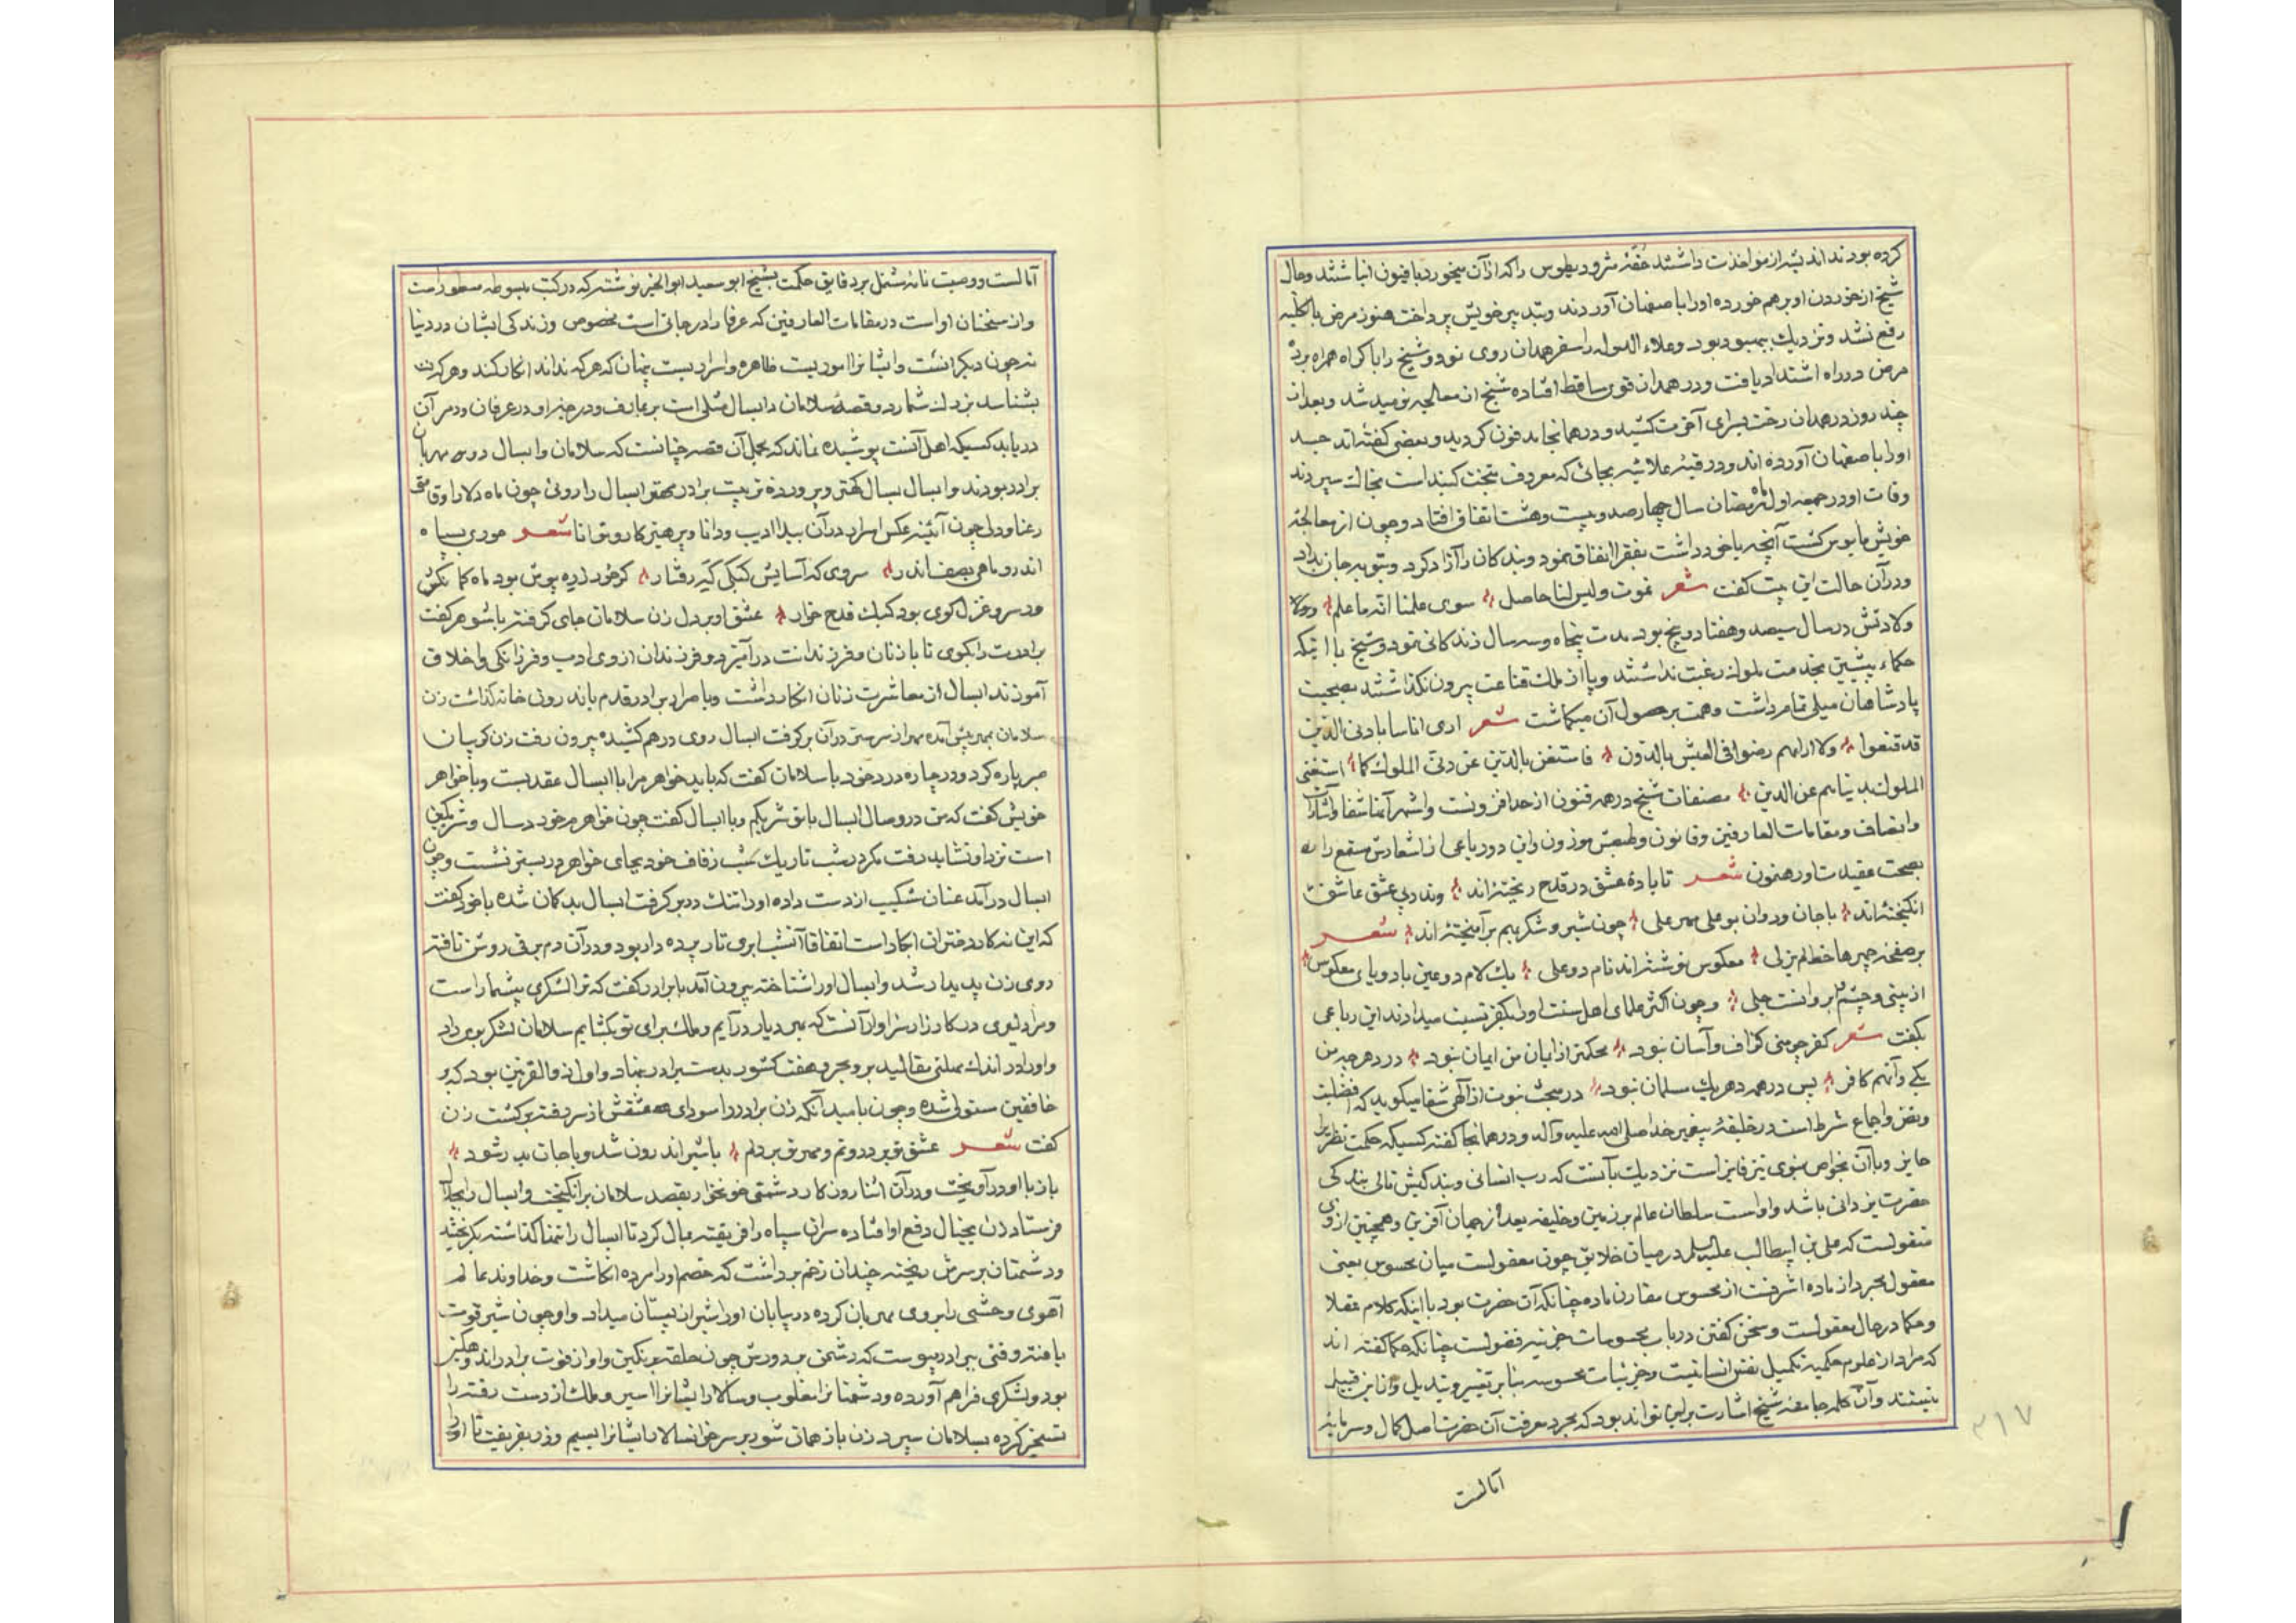 کرده بودند اندیشه از مواخذت داشتند حقهٔ مثرودیطوس را که از آن میخورد بافیون انباشتند و حال
شیخ از خوردن او بر هم خورده او را باصفهان آوردند و بتدبیر خویش پرداخت هنوز مرض بالکلیه
رفع نشد و نزدیک ببهبود بود و علاء الدوله را سفر همدان روی نمود و شیخ را باکراه همراه برد
مرض در راه اشتداد یافت و در همدان قوی ساقط افتاده شیخ از معالجه نومید شد و بعد از
چند روز در همدان رخت بسرای آخرت کشید و در همانجا مدفون گردید و بعضی گفته‌اند جسد
او را باصفهان آورده اند و در قبهٔ علائیه بجائی که معروف بتخت گنبد است بخاک سپردند
وفات او در جمعه اول ماه رمضان سال چهارصد و بیست و هشت اتفاق افتاد و چون از معالجهٔ
خویش مایوس گشت آنچه با خود داشت بفقرا انفاق نمود و بندگان را آزاد کرد و بتوبه جان بداد
و در آن حالت این بیت گفت شعر نموت و لیس لنا حاصل سوی علمنا انه ما علم
ولادتش در سال سیصد و هفتاد و پنج بود مدت پنجاه و سه سال زندگانی نمود و شیخ با اینکه
حکماء پیشین بخدمت ملوک رغبت نداشتند و پا از ملک قناعت بیرون نگذاشتند بصحبت
پادشاهان میلی تمام داشت و همت بر حصول آن میگماشت شعر اری اناسا بادنی الدین
قد قنعوا ولا اراهم رضوا فی العیش بالدون فاستغن بالدین عن دنی الملوک کما استغنی
الملوک بدنیاهم عن الدین مصنفات شیخ در همه فنون از حد افزونست و اشهر آنها شفا و اشارات
و انصاف و مقامات العارفین و قانون و طبعش موزون و این دو رباعی از اشعارش مستمع را
بصحت عقیدت او رهنمون شعر تا بادهٔ عشق در قدح ریخته‌اند وندر پی عشق عاشق
انگیخته‌اند با جان و روان بوعلی مهر علی چون شیر و شکر بهم برآمیخته‌اند شعر
بر صفحه چهرها خط لم یزلی معکوس نوشته‌اند نام دو علی یک لام دو عین با دو یای معکوس
از بینی و چشم و ابروانست جلی و چون اکثر علمای اهل سنت او را بکفر نسبت میدادند این رباعی
بگفت شعر کفر چو منی گزاف و آسان نبود محکمتر از ایمان من ایمان نبود در دهر چو من
یکی و آنهم کافر پس در همه دهر یک مسلمان نبود در مبحث نبوت از الهی شفا میگوید که افضلیت
و نص و اجماع شرط است در خلیفهٔ پیغمبر خدا صلی الله علیه و آله و در همانجا گفته کسیکه حکمت نظریه را
حایز و با آن بخواص نبوی نیز فایز است نزدیک بآنست که رب انسانی و بندگیش تالی بندگی
حضرت یزدانی باشد و او است سلطان عالم برزمین و خلیفه بعد از جهان آفرین و همچنین از وی
منقولست که علی بن ابیطالب علیه السلام در میان خلایق چون معقولست میان محسوس یعنی
معقول مجرد از ماده اشرفست از محسوس مقارن ماده چنانکه آن حضرت بود با اینکه کلام عقلا
و حکما در حال معقولست و سخن گفتن در باب محسوسات جزئیه فضولست چنانکه حکما گفته اند
که مراد از علوم حکمیه تکمیل نفس انسانیست و جزئیات محسوسه بنا بر تغییر و تبدیل از این قبیل
نیستند و آن کلمه جامعه شیخ اشارت براین تواند بود که بجرد معرفت آن حضرت اصل کمال و سرمایهٔ
آمالست
۳۱۷
آمالست و وصیت نامه مشتمل بر دقایق حکمت بشیخ ابو سعید ابوالخیر نوشته که در کتب مبسوطه مسطور است
و از سخنان او است در مقامات العارفین که عرفا را درجاتی است مخصوص و زندگی ایشان در دنیا
نه چون دیگرانست و ایشانرا اموریست ظاهره و اسراریست پنهان که هر که نداند انکار کند و هر که
بشناسد بزرگ شمارد و قصهٔ سلامان و ابسال مثلی است بر عارف و درجهٔ او در عرفان و رمز آن
دریابد کسیکه اهل آنست پوشیده نماند که مجمل آن قصه چنانست که سلامان و ابسال دو مهربان
برادر بودند و ابسال بسال کهتر و پروردهٔ تربیت برادر مهتر ابسال را روئی چون ماه دلارا و قامتی
رعنا و دلی چون آئینه عکس اسرار در آن پیدا ادیب و دانا و پرهیزکار و توانا شعر موری بسپاه
اندر و ماهی بصف اندر سروی که آسایش کبکی گه رفتار گر خود زره پوش بود ماه کمانکش
ور سرو غزل گوی بود کبک قدح خوار عشق او بر دل زن سلامان جای گرفته با شوهر گفت
برادرت را بگوی تا با زنان و فرزندانت درآمیزد و فرزندان از وی ادب و فرزانگی و اخلاق
آموزند ابسال از معاشرت زنان انکار داشت و بامر برادر قدم باندرون خانه گذاشت زن
سلامان بمهر پیش آمده مهر از سر در آن برگرفت ابسال روی درهم کشیده بیرون رفت زن گریبان
صبر پاره کرد و در چاره درد خود با سلامان گفت که باید خواهر مرا با ابسال عقد بست و با خواهر
خویش گفت که من در وصال ابسال با تو شریکم و با ابسال گفت چون خواهرم خورد سال و شرمگین
است نزد او نشاید رفت مگر در شب تاریک شب زفاف خود بجای خواهر در بستر نشست و چون
ابسال درآمد عنان شکیب از دست داده او را تنگ در بر گرفت ابسال بدگمان شده با خود گفت
که این نه کار دختران ابکار است اتفاقا آنشب ابری تار پرده دار بود و در آن دم برقی روشن تافته
روی زن پدیدار شد و ابسال او را شناخته بیرون آمد با برادر گفت که ترا لشکری بیشمار است
و مرا دلیری در کارزار سزاوار آنست که بهر دیار درآیم و ملک برای تو بگشایم سلامان لشکر بوی داد
و او را در اندک مهلتی مقالید بر و بحر و هفت کشور بدست برادر بنهاد و او اول ذو القرنین بود که بر
خافقین مستولی شده و چون بامید آنکه زن برادر را سودای عشقش از سر رفته برگشت زن
گفت شعر عشق تو پروردم و مهر تو بر دلم با شیر اندرون شد و با جان بدر شود
باز با او درآویخت و در آن اثنا روزگار دشمنی خونخوار بقصد سلامان برانگیخت و ابسال را بجدال
فرستاد زن بخیال دفع او افتاده سران سپاه را فریفته بمال کرد تا ابسال را تنها گذاشته بگریختند
و دشمنان بر سرش ریخته چندان زخم برداشت که خصم او را مرده انگاشت و خداوند عالم
آهوی وحشی را بر وی مهربان کرده در بیابان او را شیر از پستان میداد و او چون شیر قوت
یافته وقتی ببرادر پیوست که دشمن بر دورش چون حلقه بر نگین و او از فوت برادر اندوهگین
بود لشکری فراهم آورده و دشمنانرا مغلوب و سالار ایشانرا اسیر و ملک از دست رفته را
تسخیر کرده بسلامان سپرد زن باز همان شور بر سر خوانسالار ایشانرا بسیم و زر بفریفت تا او را